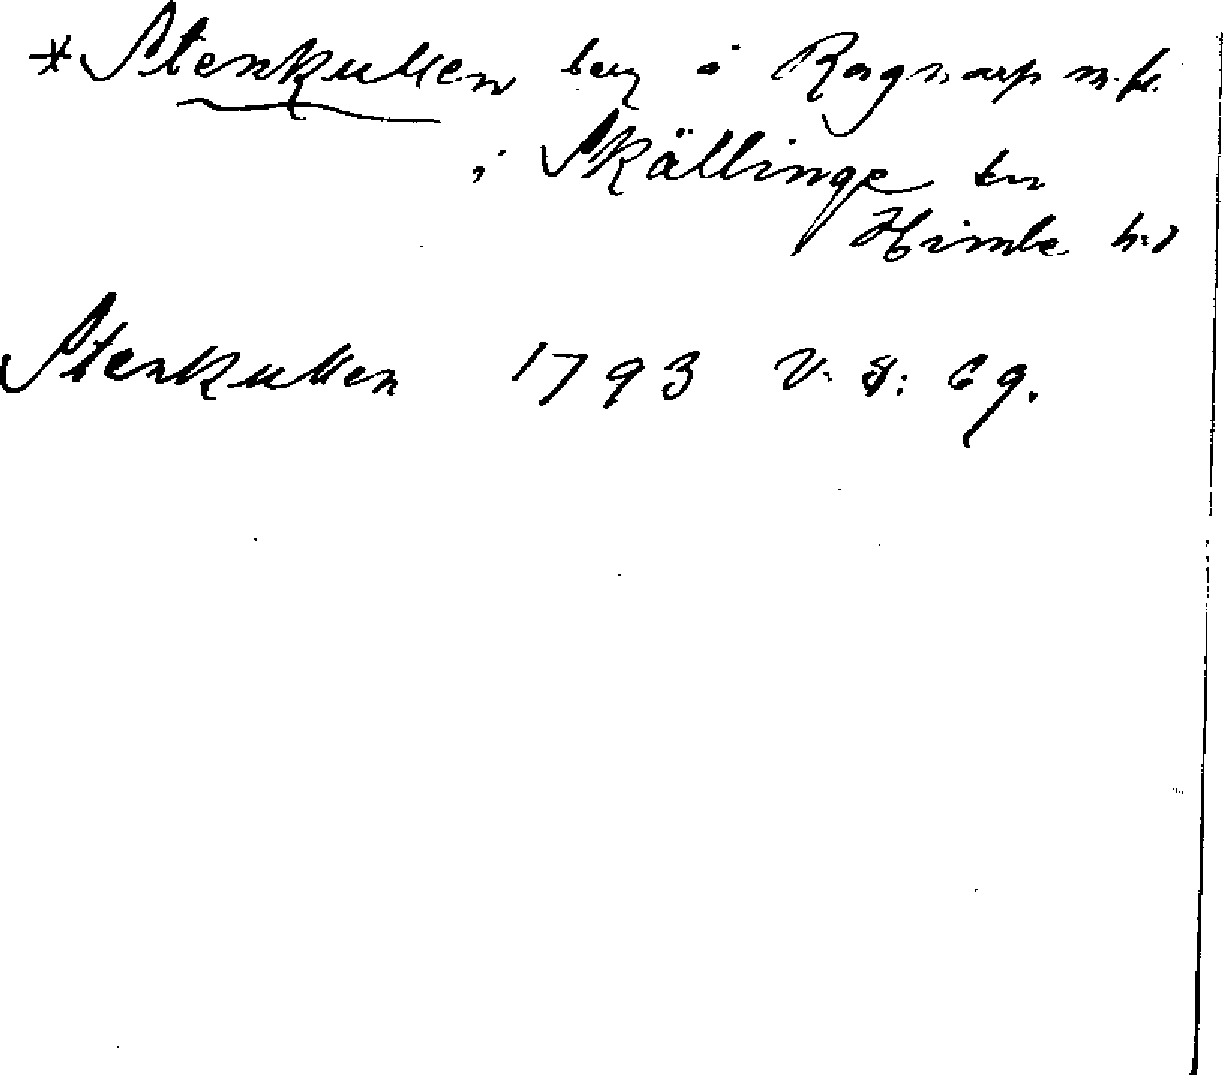 *Stenkullen berg i Ragnarp m.fl.
i Skällinge sn
Himle hd
Stenkullen 1793 V: 8: 69.